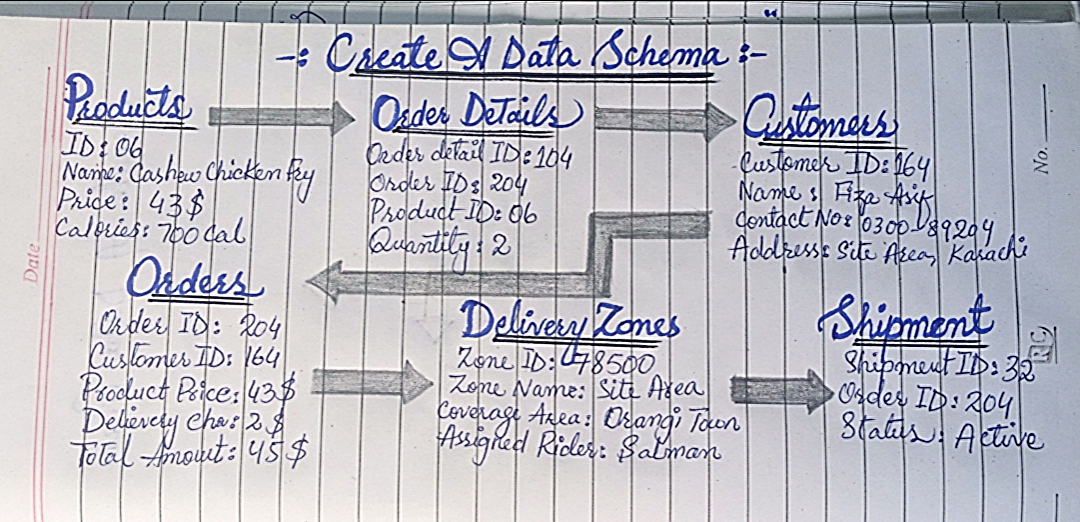 -: Create A Data Schema :-
Products
ID: 06
Name: Cashew Chicken Fry
Price: 43$
Calories: 700 Cal
Order Details
Order detail ID: 104
Order ID: 204
Product ID: 06
Quantity: 2
Customers
Customer ID: 164
Name: Fiza Asif
Contact No: 0300-89204
Address: Site Area, Karachi
Orders
Order ID: 204
Customer ID: 164
Product Price: 43$
Delievery Cha: 2$
Total Amount: 45$
Delivery Zones
Zone ID: 78500
Zone Name: Site Area
Coverage Area: Orangi Town
Assigned Rider: Salman
Shipment
Shipment ID: 32
Order ID: 204
Status: Active
Date
No.